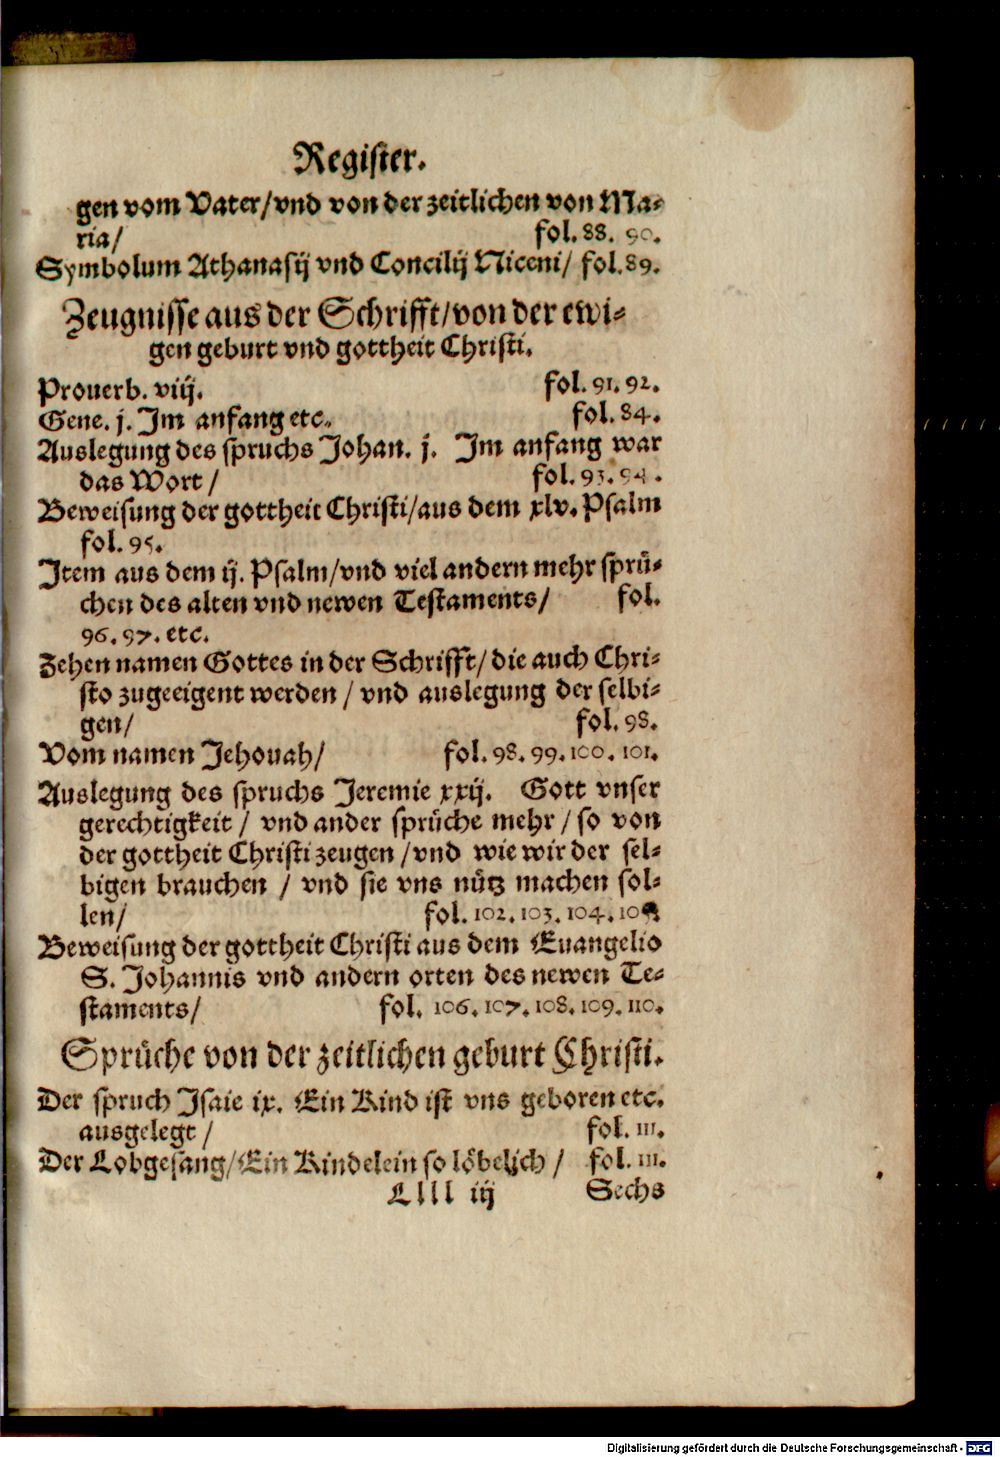 Register.
gen vom Vater/vnd von der zeitlichen von Ma-
ria/ fol. 88. 90.
Symbolum Athanasij vnd Concilij Niceni/ fol. 89.
Zeugnisse aus der Schrifft/von der ewi-
gen geburt vnd gottheit Christi.
Prouerb. viij. fol. 91. 92.
Gene. j. Im anfang etc. fol. 84.
Auslegung des spruchs Johan. j. Im anfang war
das Wort / fol. 93. 94.
Beweisung der gottheit Christi/aus dem xlv. Psalm
fol. 95.
Item aus dem ij. Psalm/vnd viel andern mehr sprü-
chen des alten vnd newen Testaments/ fol.
96. 97. etc.
Zehen namen Gottes in der Schrifft/ die auch Chri-
sto zugeeigent werden / vnd auslegung der selbi-
gen/ fol. 98.
Vom namen Jehouah/ fol. 98. 99. 100. 101.
Auslegung des spruchs Jeremie xxij. Gott vnser
gerechtigkeit / vnd ander sprüche mehr / so von
der gottheit Christi zeugen /vnd wie wir der sel-
bigen brauchen / vnd sie vns nütz machen sol-
len/ fol. 102. 103. 104.
Beweisung der gottheit Christi aus dem Euangelio
S. Johannis vnd andern orten des newen Te-
staments/ fol. 106. 107. 108. 109. 110.
Sprüche von der zeitlichen geburt Christi.
Der spruch Isaie ix. Ein Kind ist vns geboren etc.
ausgelegt / fol. 111.
Der Lobgesang/Ein Kindelein so löbelich / fol. 111.
Llll iij Sechs
Digitalisierung gefördert durch die Deutsche Forschungsgemeinschaft - DFG